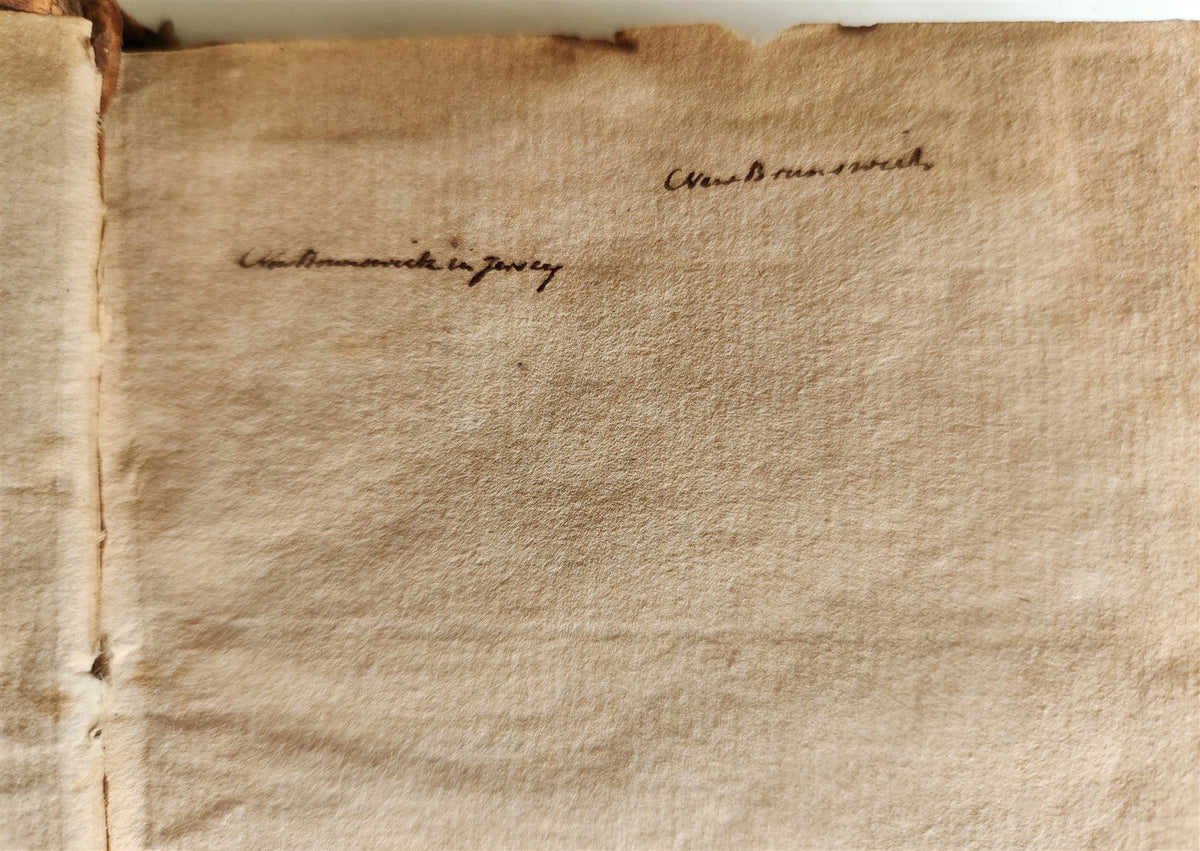 New Brunswick
New Brunswick in Jersey